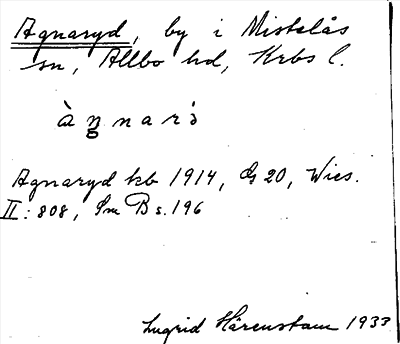 Agnaryd, by i Mistelås
sn, Allbo hd, Krbs l.
àŋnarə̀
Agnaryd kb 1914, G 20, Wies.
II: 808, Sm B s. 196
Ingrid Härenstam 1933